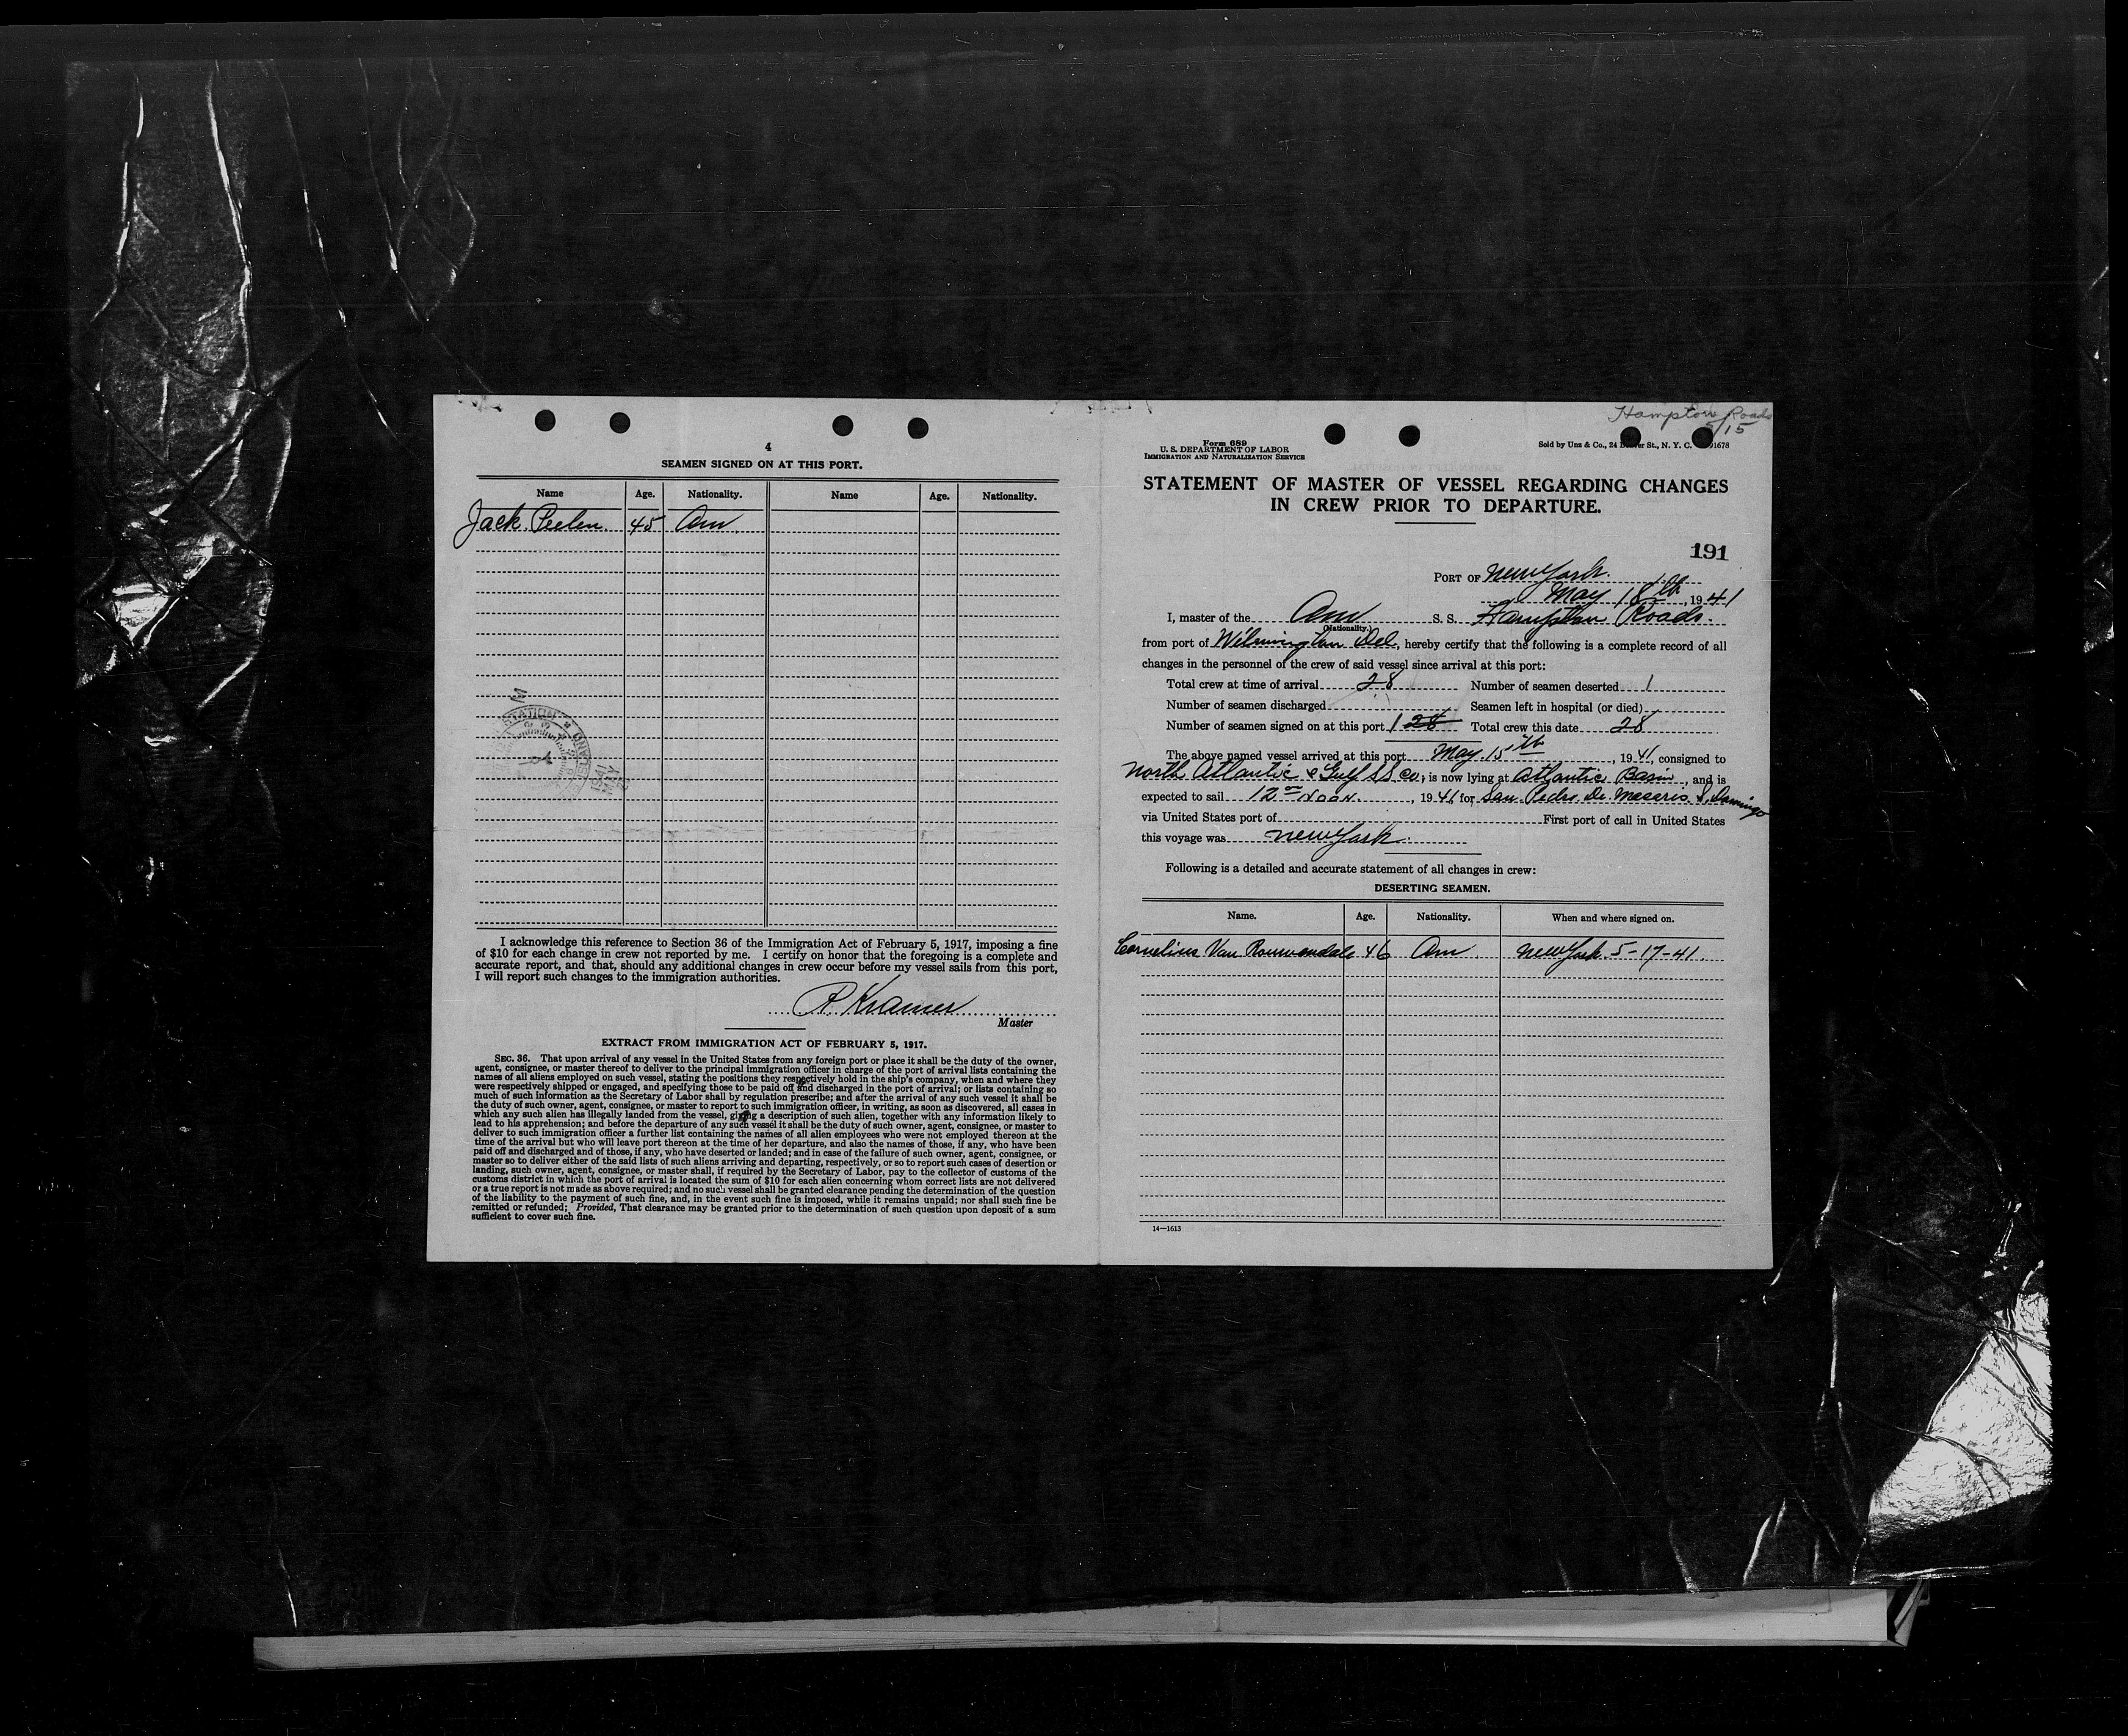 4
SEAMEN SIGNED ON AT THIS PORT.
Name Age. Nationality. Name Age. Nationality.
Jack Peelen 45 Am
I acknowledge this reference to Section 36 of the Immigration Act of February 5, 1917, imposing a fine
of $10 for each change in crew not reported by me. I certify on honor that the foregoing is a complete and
accurate report, and that, should any additional changes in crew occur before my vessel sails from this port,
I will report such changes to the immigration authorities.
P. Kramer
Master
EXTRACT FROM IMMIGRATION ACT OF FEBRUARY 5, 1917.
SEC. 36. That upon arrival of any vessel in the United States from any foreign port or place it shall be the duty of the owner,
agent, consignee, or master thereof to deliver to the principal immigration officer in charge of the port of arrival lists containing the
names of all aliens employed on such vessel, stating the positions they respectively hold in the ship's company, when and where they
were respectively shipped or engaged, and specifying those to be paid off and discharged in the port of arrival; or lists containing so
much of such information as the Secretary of Labor shall by regulation prescribe; and after the arrival of any such vessel it shall be
the duty of such owner, agent, consignee, or master to report to such immigration officer, in writing, as soon as discovered, all cases in
which any such alien has illegally landed from the vessel, giving a description of such alien, together with any information likely to
lead to his apprehension; and before the departure of any such vessel it shall be the duty of such owner, agent, consignee, or master to
deliver to such immigration officer a further list containing the names of all alien employees who were not employed thereon at the
time of the arrival but who will leave port thereon at the time of her departure, and also the names of those, if any, who have been
paid off and discharged and of those, if any, who have deserted or landed; and in case of the failure of such owner, agent, consignee, or
master so to deliver either of the said lists of such aliens arriving and departing, respectively, or so to report such cases of desertion or
landing, such owner, agent, consignee, or master shall, if required by the Secretary of Labor, pay to the collector of customs of the
customs district in which the port of arrival is located the sum of $10 for each alien concerning whom correct lists are not delivered
or a true report is not made as above required; and no such vessel shall be granted clearance pending the determination of the question
of the liability to the payment of such fine, and, in the event such fine is imposed, while it remains unpaid; nor shall such fine be
remitted or refunded; Provided, That clearance may be granted prior to the determination of such question upon deposit of a sum
sufficient to cover such fine.
Hampton Roads
5/15
Form 689
U. S. DEPARTMENT OF LABOR
IMMIGRATION AND NATURALIZATION SERVICE
Sold by Unz & Co., 24 St., N. Y. C. 1678
STATEMENT OF MASTER OF VESSEL REGARDING CHANGES
IN CREW PRIOR TO DEPARTURE.
191
PORT OF New York.
May 18th, 1941
I, master of the Am S. S. Hampton Roads.
(Nationality.)
from port of Wilmington Del, hereby certify that the following is a complete record of all
changes in the personnel of the crew of said vessel since arrival at this port:
Total crew at time of arrival 28 Number of seamen deserted 1
Number of seamen discharged Seamen left in hospital (or died)
Number of seamen signed on at this port 1 28 Total crew this date 28
The above named vessel arrived at this port May 15th, 1941, consigned to
North Atlantic & Gulf SS Co, is now lying at Atlantic Basin, and is
expected to sail 12 NOON, 1941 for San Pedro De Maceris S. Domingo
via United States port of First port of call in United States
this voyage was New York.
Following is a detailed and accurate statement of all changes in crew:
DESERTING SEAMEN.
Name. Age. Nationality. When and where signed on.
Cornelius Van 46 Am New York 5-17-41
14—1613